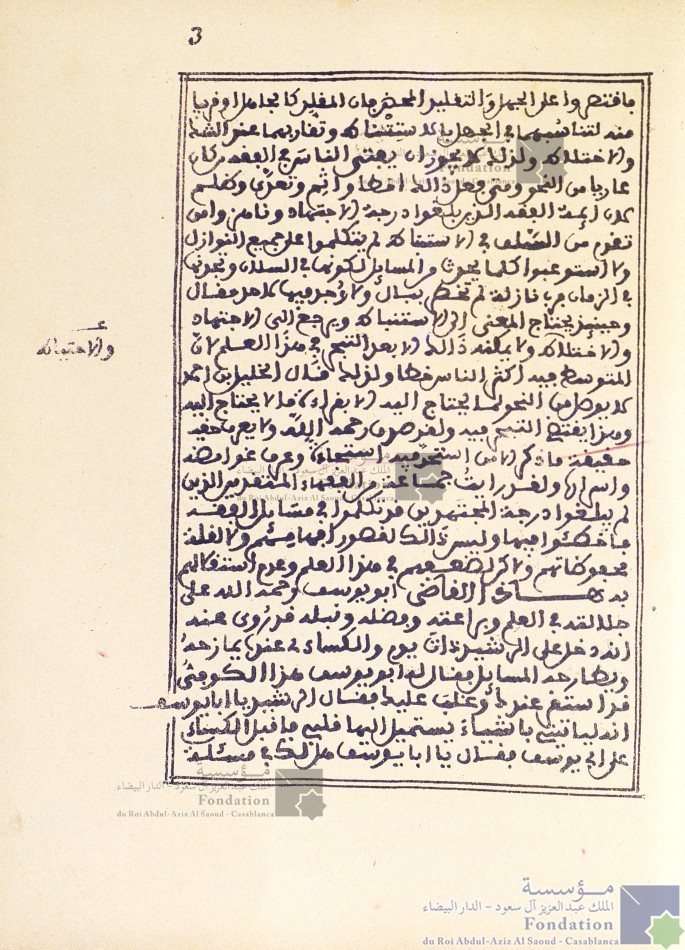 3
ما فتصروا على الجهل والتقليد المحض فإن المقلد كالجاهل أو قريبا
منه لتناسبهما في الجهل بالاستنباط وتقاربهما عند الشك
والاختلاط ولذلك لا يجوز ان يفتي الناس في الفقه من كان
عاريا من النحو ومتى فعل ذالك اخطأ واثم وتعدى وظلم
لان ايمة الفقه الذين بلغوا درجة الاجتهاد
تقدم من السلف في الاستنباط لم يتكلموا على جميع النوازل
ولا استوعبوا كلما يحدث من المسايل لكونها
في الزمان فرب نازلة لم تخطر ببال ولا لأحد فيها مقال
وحينئذ يحتاج المفتي الى الاستنباط ويرجع الى الاجتهاد
والاحتياط
والاختلاط ولا يمكنه ذالك الا بعد التبحر في هذا العلم لان
المتوسط فيه اكثر الناس خطأ ولذلك قال الخليل بن احمد
لا يوصل من النحو لما يحتاج اليه الا بقراءة ما لا يحتاج اليه
وهذا يقتضي التبحر فيه ولقد صدق رحمه الله ولا يعرف
حقيقة ما ذكر الا من استبحر فيه وعرف غوامضه
واسراره ولقد رايت جماعة من الفقهاء المتقدمين الذين
لم يبلغوا درجة المجتهدين قد تكلموا في مسايل الفقه
فأخطئوا فيها وليس ذالك لقصور أفهامهم ولا لقلة
محفوظاتهم ولاكن لضعفهم في هذا العلم وعدم استقلالهم
به هذا القاضي ابو يوسف رحمه الله على
جلالته في العلم وبراعته وفضله ونبله قد روي عنه
انه دخل على الرشيد ذات يوم والكساءي عنده يمازحه
ويطارحه المسايل فقال له ابو يوسف هذا الكوفي
قد استفرغك وغلب عليك فقال الرشيد يا ابا يوسف
انه لياتيني باشياء يستميل اليها قلبي فاقبل الكساءي
على ابي يوسف فقال يا ابا يوسف هل لك في مسئلة
مؤسسة
الملك عبد العزيز آل سعود - الدار البيضاء
Fondation
du Roi Abdul-Aziz Al Saoud - Casablanca